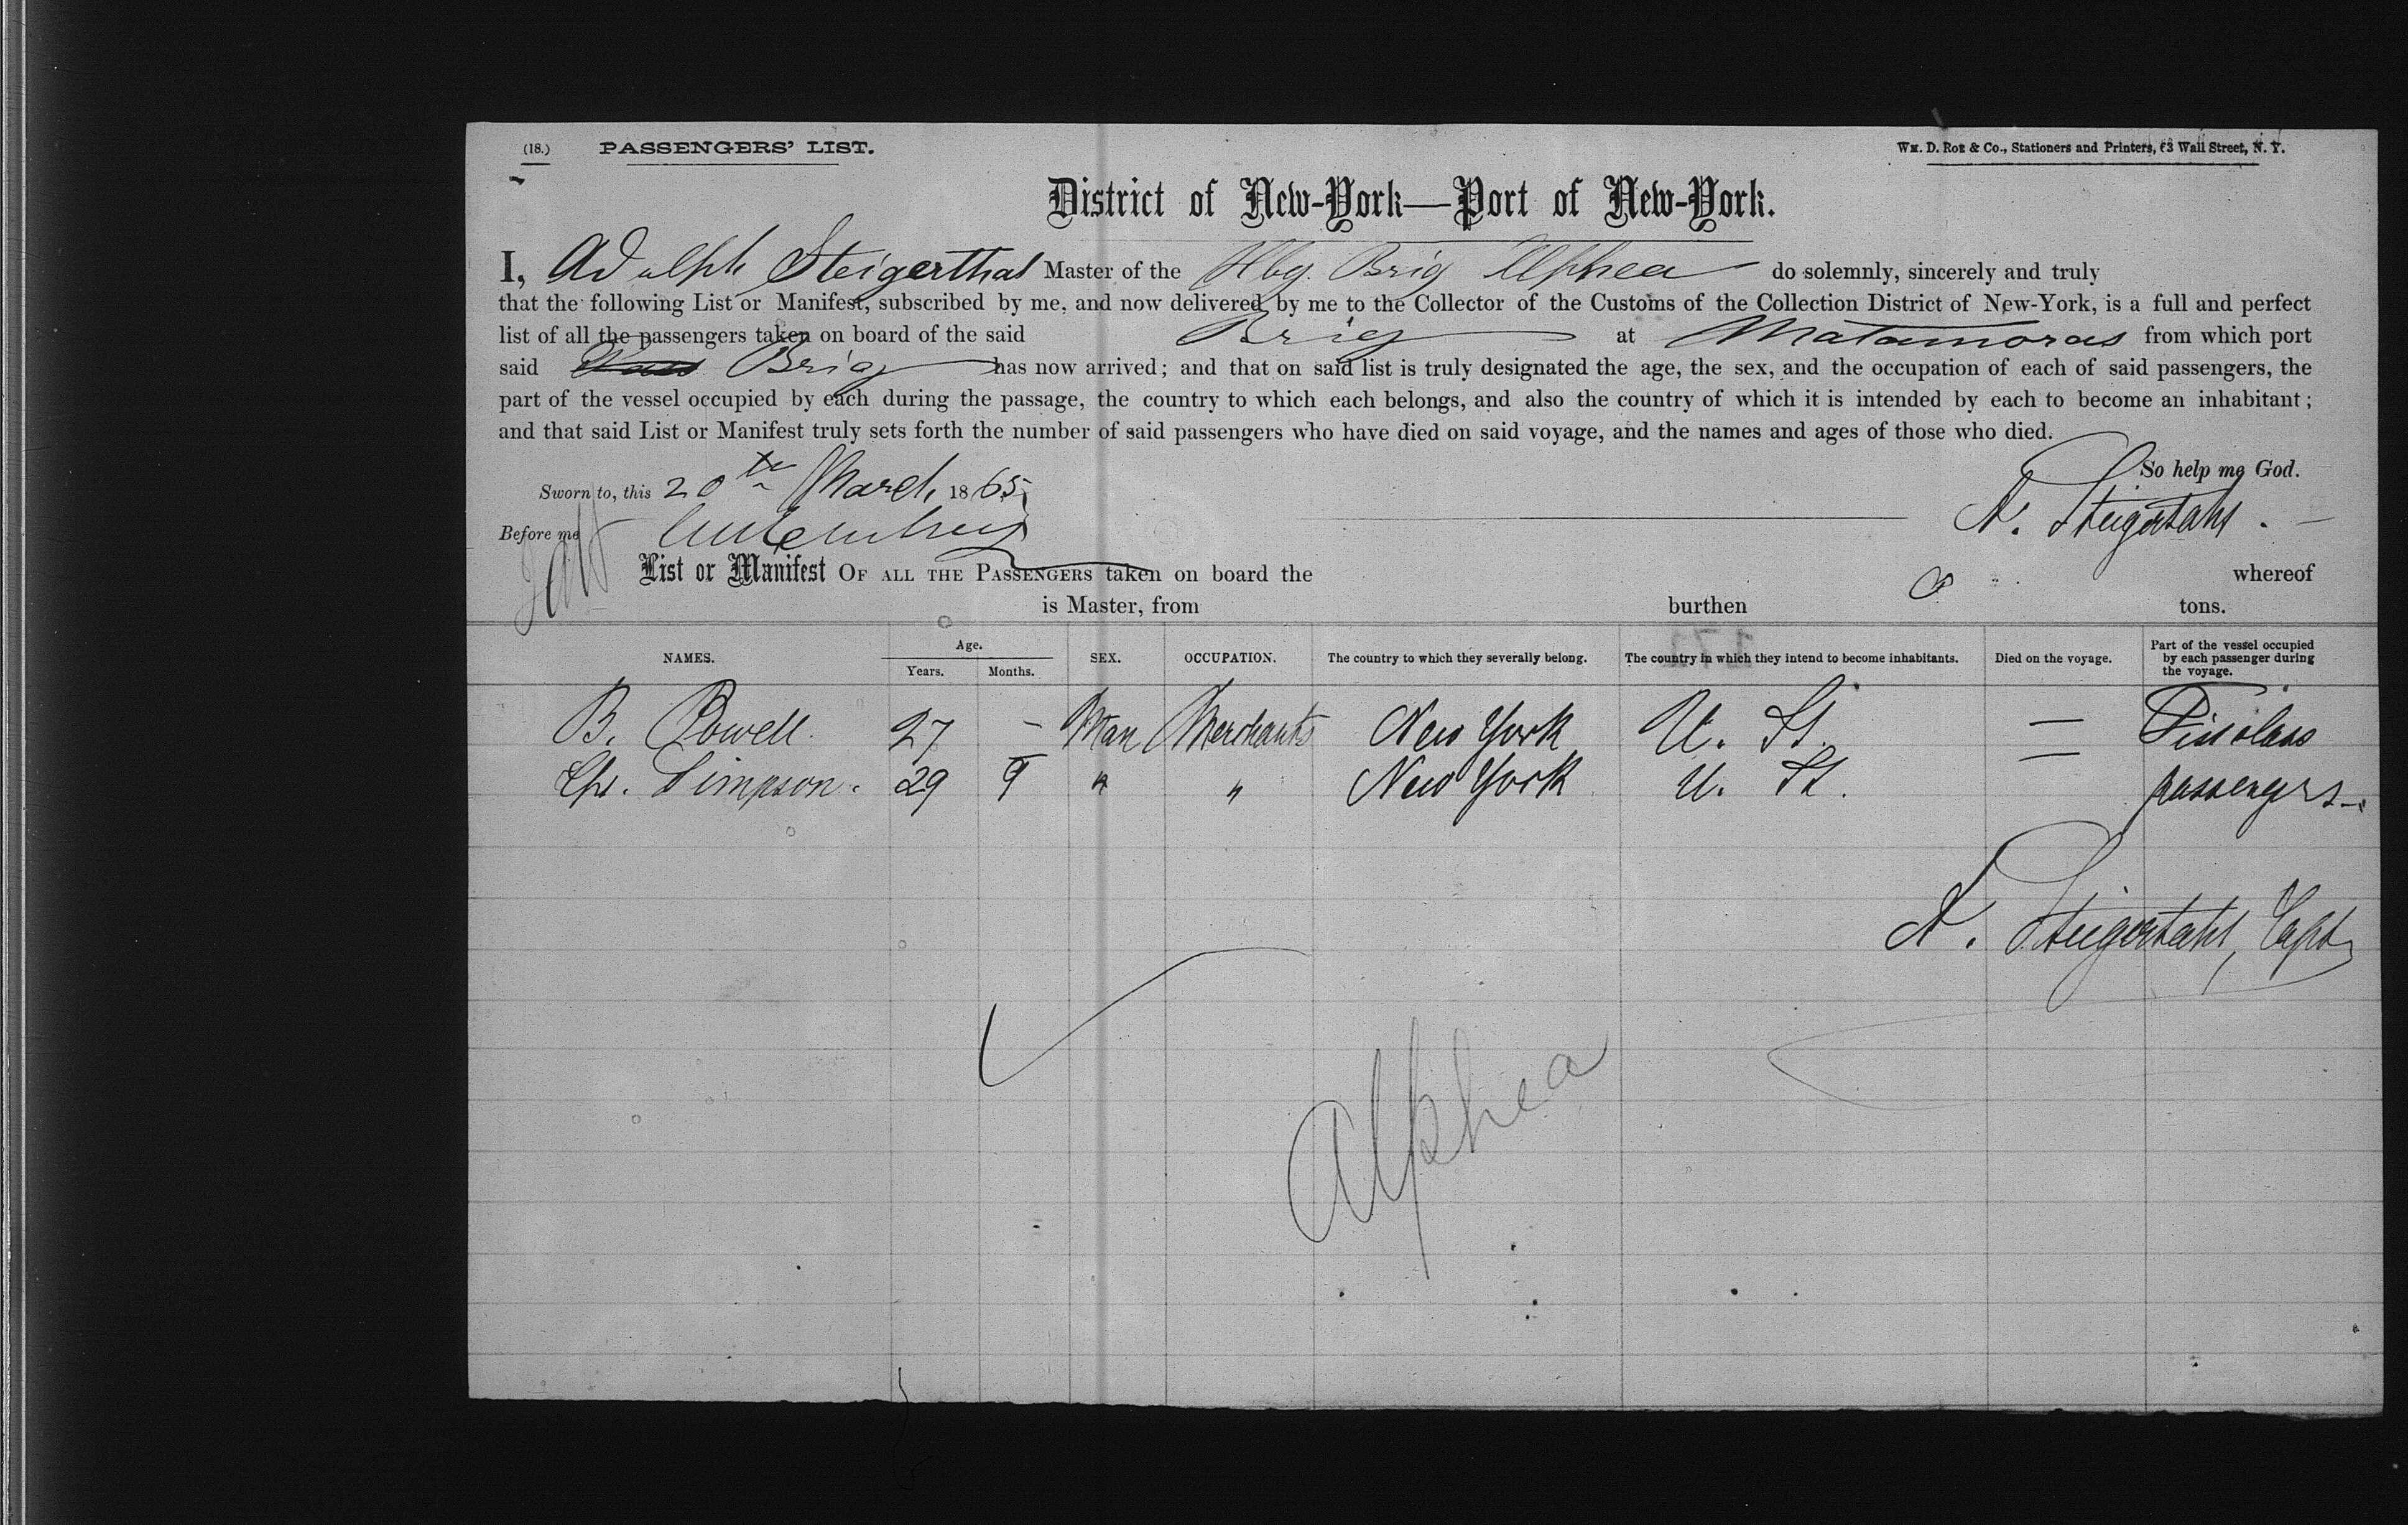 (18.) PASSENGERS' LIST. Wm. D. Roe & Co., Stationers and Printers, 63 Wall Street, N. Y.
District of New-York—Port of New-York.
I, Adolph Steigerthal Master of the Hbg. Brig Alphea do solemnly, sincerely and truly
that the following List or Manifest, subscribed by me, and now delivered by me to the Collector of the Customs of the Collection District of New-York, is a full and perfect
list of all the passengers taken on board of the said Brig at Matamoras from which port
said Brig has now arrived; and that on said list is truly designated the age, the sex, and the occupation of each of said passengers, the
part of the vessel occupied by each during the passage, the country to which each belongs, and also the country of which it is intended by each to become an inhabitant;
and that said List or Manifest truly sets forth the number of said passengers who have died on said voyage, and the names and ages of those who died.
So help me God.
Sworn to, this 20th March 1865
A. Steigertahl.
Before me
List or Manifest OF ALL THE PASSENGERS taken on board the whereof
is Master, from burthen tons.
NAMES. Age. Years. Months. SEX. OCCUPATION. The country to which they severally belong. The country in which they intend to become inhabitants. Died on the voyage. Part of the vessel occupied by each passenger during the voyage.
171
B. Powell. 27 – Man Merchants New York U. St. —
Chs. Simpson. 29 9 " " New York U. St. — passengers
A. Steigertahl, Capt
Alphea